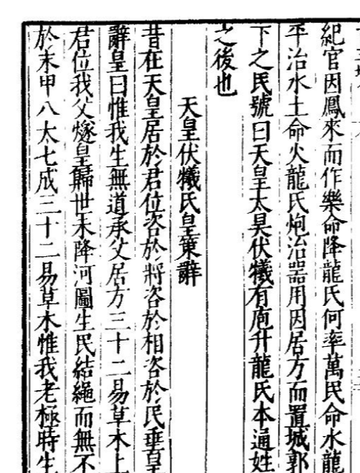 紀官因鳳來而作樂命降龍氏何率萬民命水龍
平治水土命火龍氏炮冶器用因居方而置城郭
下之民號曰天皇太昊伏犧有庖升龍氏本通姓
之後也
天皇伏犧氏皇策辭
昔在天皇居於君位咨於將咨於相咨於民垂皇
辭皇曰惟我生無道承父居方三十二易草木上
君位我父燧皇歸世未降河圖生民結繩而無不
於末甲八太七成三十二易草木惟我老極時生